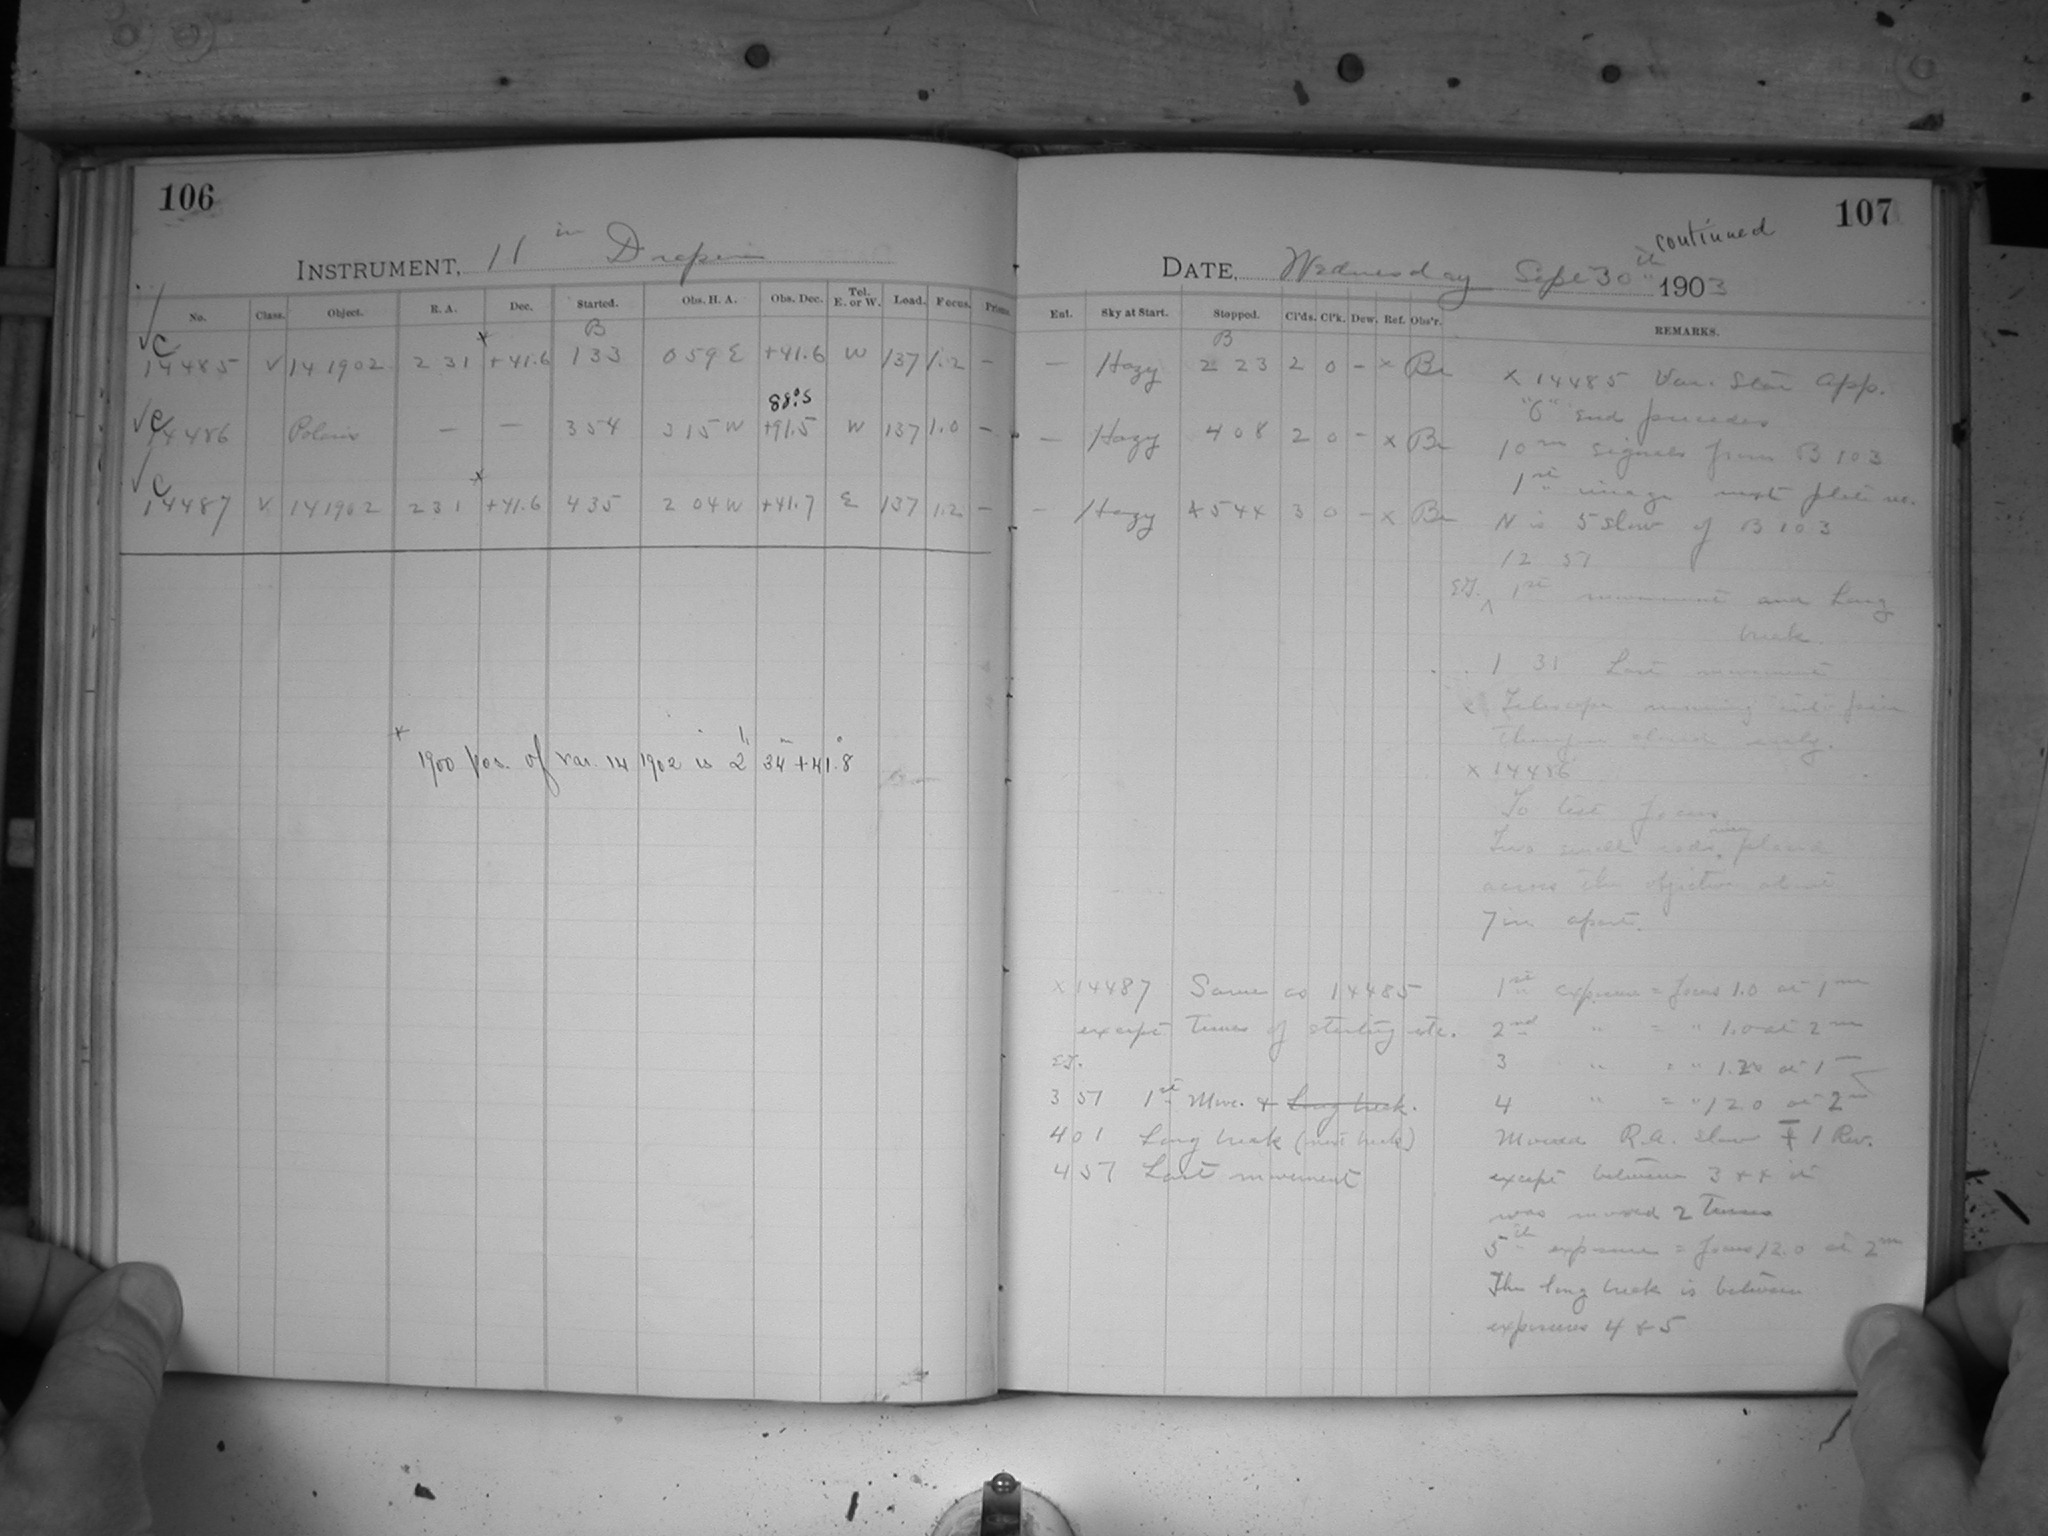 106
INSTRUMENT, 11 in Draper
No. Class. Object. R. A. Dec. Started. Obs. H. A. Obs. Dec. Tel. E. or W. Load. Focus. Prisms.
B
✓ C 14485 V 14 1902 2 31 x +41.6 1 33 0 59 E +41.6 W 137 1.2 –
88°.5
✓ C 14486 Polaris – – 3 54 3 15 W +91.5 W 137 1.0 –
✓ C 14487 V 14 1902 2 31 x +41.6 4 35 2 04 W +41.7 E 137 1.2 –
* 1900 pos. of var. 14 1902 is 2h 34m +41°.8
107
continued
DATE, Wednesday Sept 30th 1903
Ent. Sky at Start. Stopped. Cl'ds. Cl'k. Dew. Ref. Obs'r. REMARKS.
B
– Hazy 2 23 2 0 – x Br
– Hazy 4 08 2 0 – x Br
– Hazy 5 4x 3 0 – x Br
x 14485 Var. Star App.
"O" end precedes
10m signals from B 103
1st image next plate no.
N is 5 slow of B 103
12 57
E.T. ^ 1st movement and Long
break.
1 31 Last movement
Telescope moving into
x 14486
To test focus
Two small rods placed
across the objective about
7 in apart.
1st exposure = focus 1.0 at 1m
2nd " = " 1.0 at 2m
3 " = " 1.20 at 1m
4 " = " 12.0 at 2m
Moved R.A. slow + 1 Rev.
except between 3 + 4 it
was moved 2 Turns
5th exposure = focus 12.0 at 2m
The long break is between
exposures 4 + 5
x 14487 Same as 14485
except times of starting etc.
E.T.
3 57 1st Mov. + Long break.
4 01 Long break (next break)
4 57 Last movement